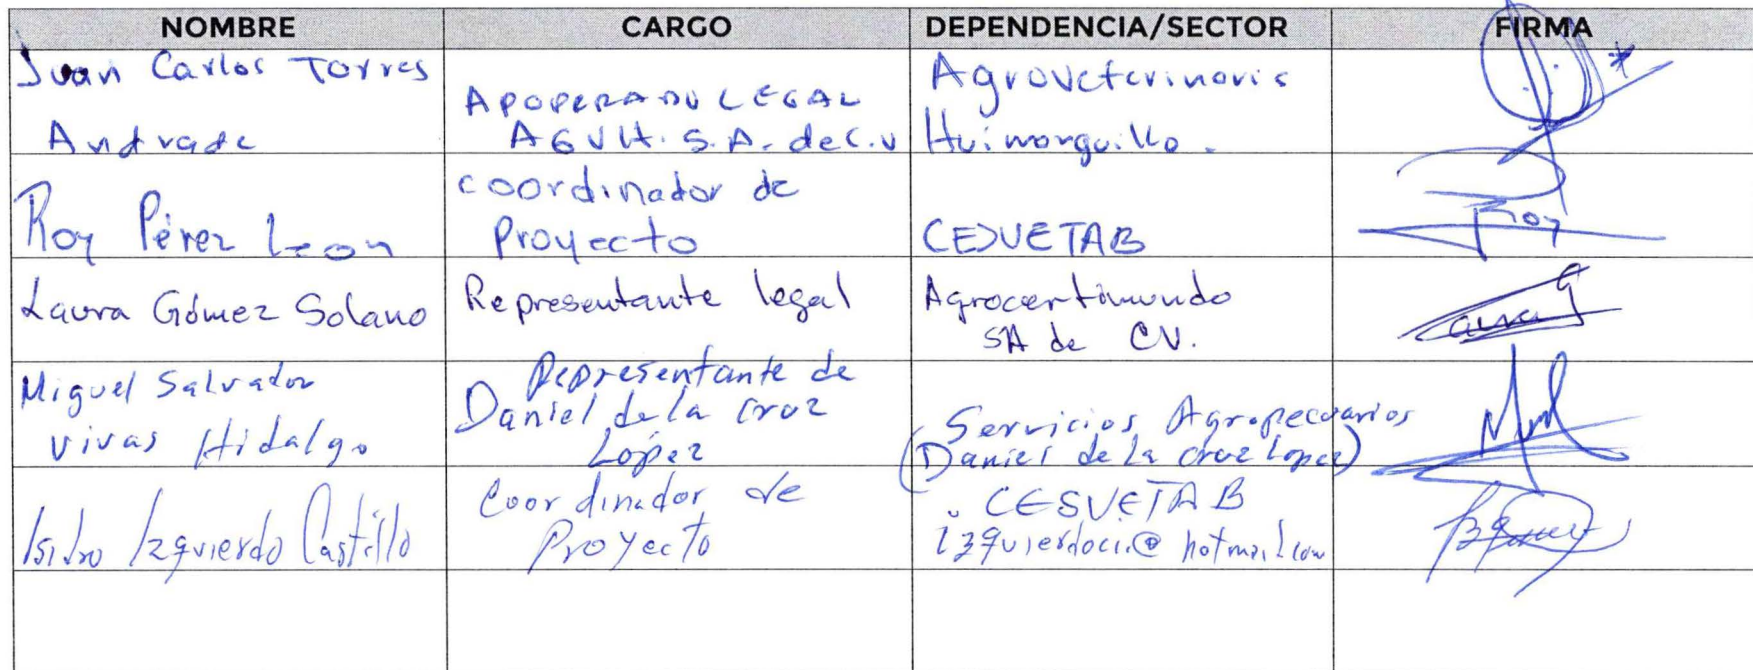 NOMBRE CARGO DEPENDENCIA/SECTOR FIRMA
Juan Carlos Torres
Andrade
APODERADO LEGAL
AGVH. S.A. de C.V
Agroveterinaria
Huimanguillo.
Roy Pérez Leon
coordinador de
Proyecto
CESVETAB
Roy
Laura Gómez Solano
Representante legal
Agrocertimundo
SA de CV.
Miguel Salvador
Vivas Hidalgo
Representante de
Daniel de la Cruz
López
Servicios Agropecuarios
(Daniel de la Cruz Lopez)
Isidro Izquierdo Castillo
Coordinador de
Proyecto
CESVETAB
izquierdoci@hotmail.com